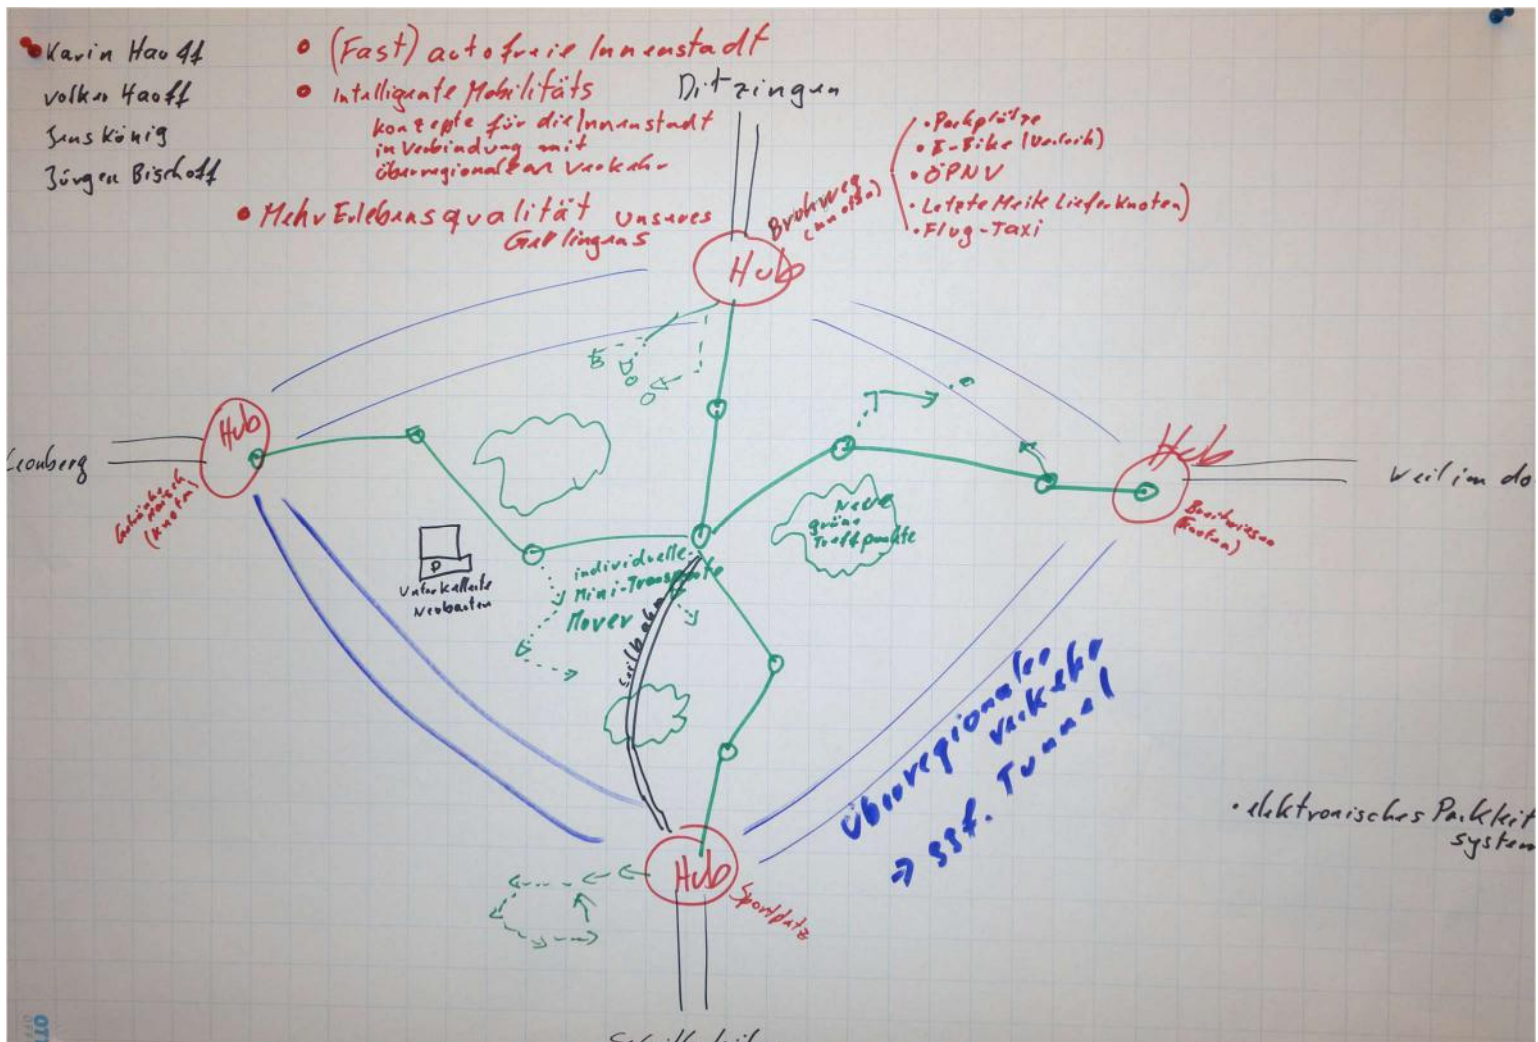 Karin Hauff
Volker Hauff
Jens König
Jürgen Bischoff
• (Fast) autofreie Innenstadt
• Intelligente Mobilitäts
konzepte für die Innenstadt
in Verbindung mit
überregionalem Verkehr
• Mehr Erlebensqualität unseres
Gerlingens
Ditzingen
Hub
(Knoten)
• Parkplätze
• E-Bike (Verleih)
• ÖPNV
• Letzte Meile Lieferknoten)
• Flug-Taxi
Leonberg
Hub
(Knoten)
Hub
Breitwiesen
(Knoten)
Weilimdo
Neue
grüne
Treffpunkte
P
Unterkellerte
Neubauten
individuelle
Mini-Transporte
Mover
Seilbahn
Überregionaler
Verkehr
→ ggf. Tunnel
• elektronisches Parkleit
system
Hub
Sportplatz